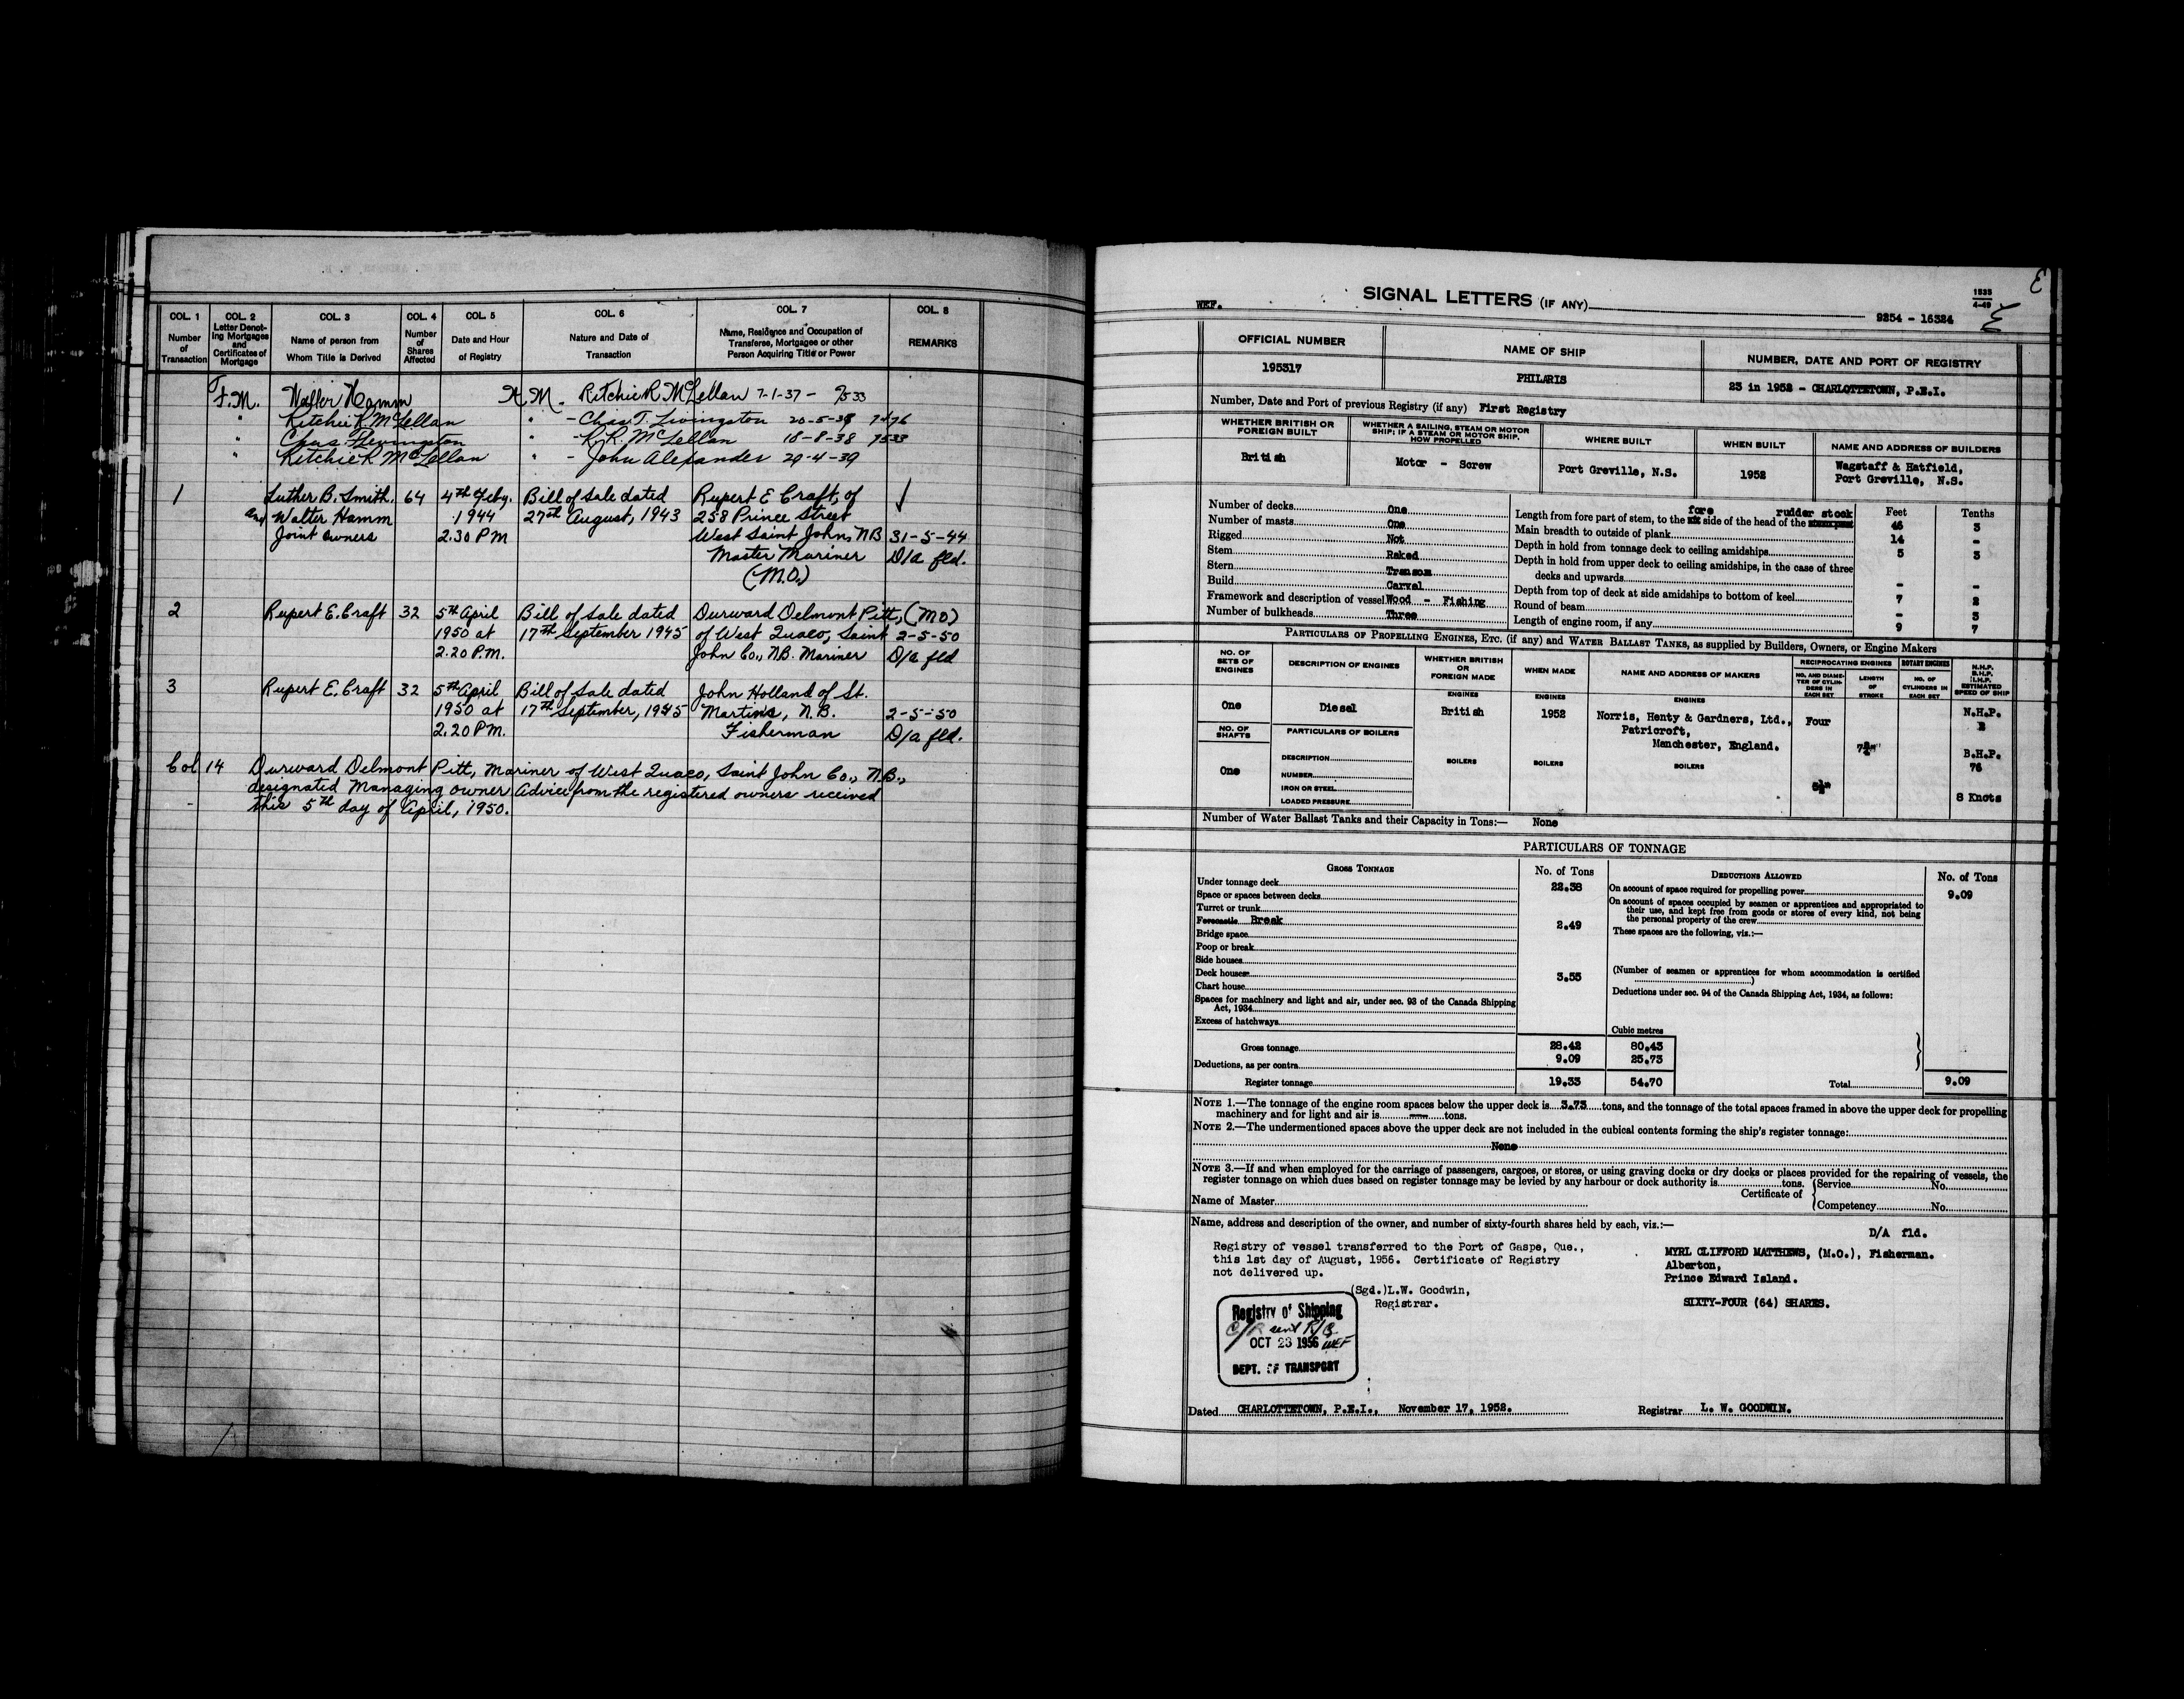 COL. 1 COL. 2 COL. 3 COL. 4 COL. 5 COL. 6 COL. 7 COL. 8
Number of Transaction
Letter Denoting Mortgages and Certificates of Mortgage
Name of person from Whom Title is Derived
Number of Shares Affected
Date and Hour of Registry
Nature and Date of Transaction
Name, Residence and Occupation of Transferee, Mortgagee or other Person Acquiring Title or Power
REMARKS
F.M. Walter Hamm A.M. - Ritchie R McLellan 7-1-37 - 7533
" Ritchie R. McLellan " - Chas. T. Livingston 20-5-38 7476
" Chas. Livingston " - R.R. McLellan 18-8-38 7533
" Ritchie R McLellan " - John Alexander 29-4-39
1 Luther B. Smith, 64 4th Feby. Bill of Sale dated Rupert E Craft, of
and Walter Hamm 1944 27th August, 1943 258 Prince Street
Joint owners 2.30 PM West Saint John, NB 31-5-44
Master Mariner D/a fld.
(M.O.)
2 Rupert E. Craft 32 5th April Bill of Sale dated Durward Delmont Pitt, (MO)
1950 at 17th September 1945 of West Quaco, Saint 2-5-50
2.20 P.M. John Co., NB. Mariner D/a fld
3 Rupert E. Craft 32 5th April Bill of Sale dated John Holland of St.
1950 at 17th September, 1945 Martins, N.B. 2-5-50
2.20 PM. Fisherman D/a fld.
Col 14 Durward Delmont Pitt, Mariner of West Quaco, Saint John Co., N.B.,
designated Managing owner Advice from the registered owners received
this 5th day of April, 1950.
WEF. SIGNAL LETTERS (IF ANY)
1535
4-49
9254 - 16324
OFFICIAL NUMBER NAME OF SHIP NUMBER, DATE AND PORT OF REGISTRY
195317 PHILARIS 23 in 1952 - CHARLOTTETOWN, P.E.I.
Number, Date and Port of previous Registry (if any) First Registry
WHETHER BRITISH OR FOREIGN BUILT
WHETHER A SAILING, STEAM OR MOTOR SHIP; IF A STEAM OR MOTOR SHIP, HOW PROPELLED
WHERE BUILT
WHEN BUILT
NAME AND ADDRESS OF BUILDERS
British Motor - Screw Port Greville, N.S. 1952 Wagstaff & Hatfield,
Port Greville, N.S.
Number of decks One
Number of masts One
Rigged Not
Stem Raked
Stern Transom
Build Carvel
Framework and description of vessel Wood - Fishing
Number of bulkheads Three
Feet Tenths
fore rudder stock
Length from fore part of stem, to the side of the head of the 46 3
Main breadth to outside of plank 14 -
Depth in hold from tonnage deck to ceiling amidships 5 3
Depth in hold from upper deck to ceiling amidships, in the case of three
decks and upwards - -
Depth from top of deck at side amidships to bottom of keel 7 2
Round of beam - 3
Length of engine room, if any 9 7
PARTICULARS OF PROPELLING ENGINES, ETC. (if any) and WATER BALLAST TANKS, as supplied by Builders, Owners, or Engine Makers
NO. OF SETS OF ENGINES
DESCRIPTION OF ENGINES
WHETHER BRITISH OR FOREIGN MADE
WHEN MADE
NAME AND ADDRESS OF MAKERS
RECIPROCATING ENGINES
NO. AND DIAMETER OF CYLINDERS IN EACH SET
LENGTH OF STROKE
ROTARY ENGINES
NO. OF CYLINDERS IN EACH SET
N.H.P.
B.H.P.
I.H.P.
ESTIMATED SPEED OF SHIP
ENGINES ENGINES ENGINES
One Diesel British 1952 Norris, Henty & Gardners, Ltd., Four N.H.P.
Patricroft,
Manchester, England.
NO. OF SHAFTS PARTICULARS OF BOILERS
B.H.P.
76
DESCRIPTION BOILERS BOILERS BOILERS
One NUMBER
IRON OR STEEL
LOADED PRESSURE
8 Knots
Number of Water Ballast Tanks and their Capacity in Tons:— None
PARTICULARS OF TONNAGE
GROSS TONNAGE No. of Tons DEDUCTIONS ALLOWED No. of Tons
Under tonnage deck 22.38
Space or spaces between decks
Turret or trunk
Forecastle Break 2.49
Bridge space
Poop or break
Side houses
Deck houses 3.55
Chart house
Spaces for machinery and light and air, under sec. 93 of the Canada Shipping
Act, 1934
Excess of hatchways
On account of space required for propelling power 9.09
On account of spaces occupied by seamen or apprentices and appropriated to
their use, and kept free from goods or stores of every kind, not being
the personal property of the crew
These spaces are the following, viz.:—
(Number of seamen or apprentices for whom accommodation is certified
)
Deductions under sec. 94 of the Canada Shipping Act, 1934, as follows:
Cubic metres
Gross tonnage 28.42 80.43
Deductions, as per contra 9.09 25.73
Register tonnage 19.33 54.70 Total 9.09
NOTE 1.—The tonnage of the engine room spaces below the upper deck is 3.73 tons, and the tonnage of the total spaces framed in above the upper deck for propelling
machinery and for light and air is — tons.
NOTE 2.—The undermentioned spaces above the upper deck are not included in the cubical contents forming the ship's register tonnage:
None
NOTE 3.—If and when employed for the carriage of passengers, cargoes, or stores, or using graving docks or dry docks or places provided for the repairing of vessels, the
register tonnage on which dues based on register tonnage may be levied by any harbour or dock authority is tons.
Name of Master Certificate of Service No.
Competency No.
Name, address and description of the owner, and number of sixty-fourth shares held by each, viz.:—
D/A fld.
Registry of vessel transferred to the Port of Gaspe, Que.,
this 1st day of August, 1956. Certificate of Registry
not delivered up.
(Sgd.)L.W. Goodwin,
Registrar.
MYRL CLIFFORD MATTHEWS, (M.O.), Fisherman.
Alberton,
Prince Edward Island.
SIXTY-FOUR (64) SHARES.
Registry of Shipping
OCT 23 1956 WEF
DEPT. OF TRANSPORT
Dated CHARLOTTETOWN, P.E.I., November 17, 1952. Registrar L. W. GOODWIN.